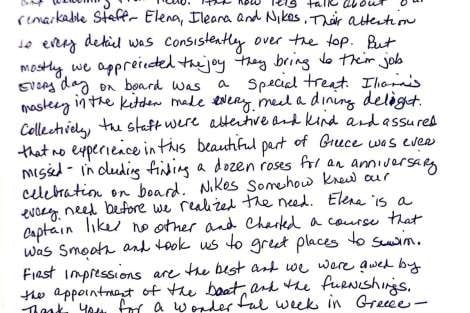 now lets talk about our
remarkable staff - Elena, Ileana and Nikos. Their attention
to every detail was consistently over the top. But
mostly we appreciated the joy they bring to their job
Every day on board was a special treat. Iliana's
mastery in the kitchen made every meal a dining delight.
Collectively, the staff were attentive and kind and assured
that no experience in this beautiful part of Greece was ever
missed - including finding a dozen roses for an anniversary
celebration on board. Nikos somehow knew our
every need before we realized the need. Elena is a
captain like no other and charted a course that
was smooth and took us to great places to swim.
First impressions are the best and we were awed by
the appointment of the boat and the furnishings.
Thank you for a wonderful week in Greece -